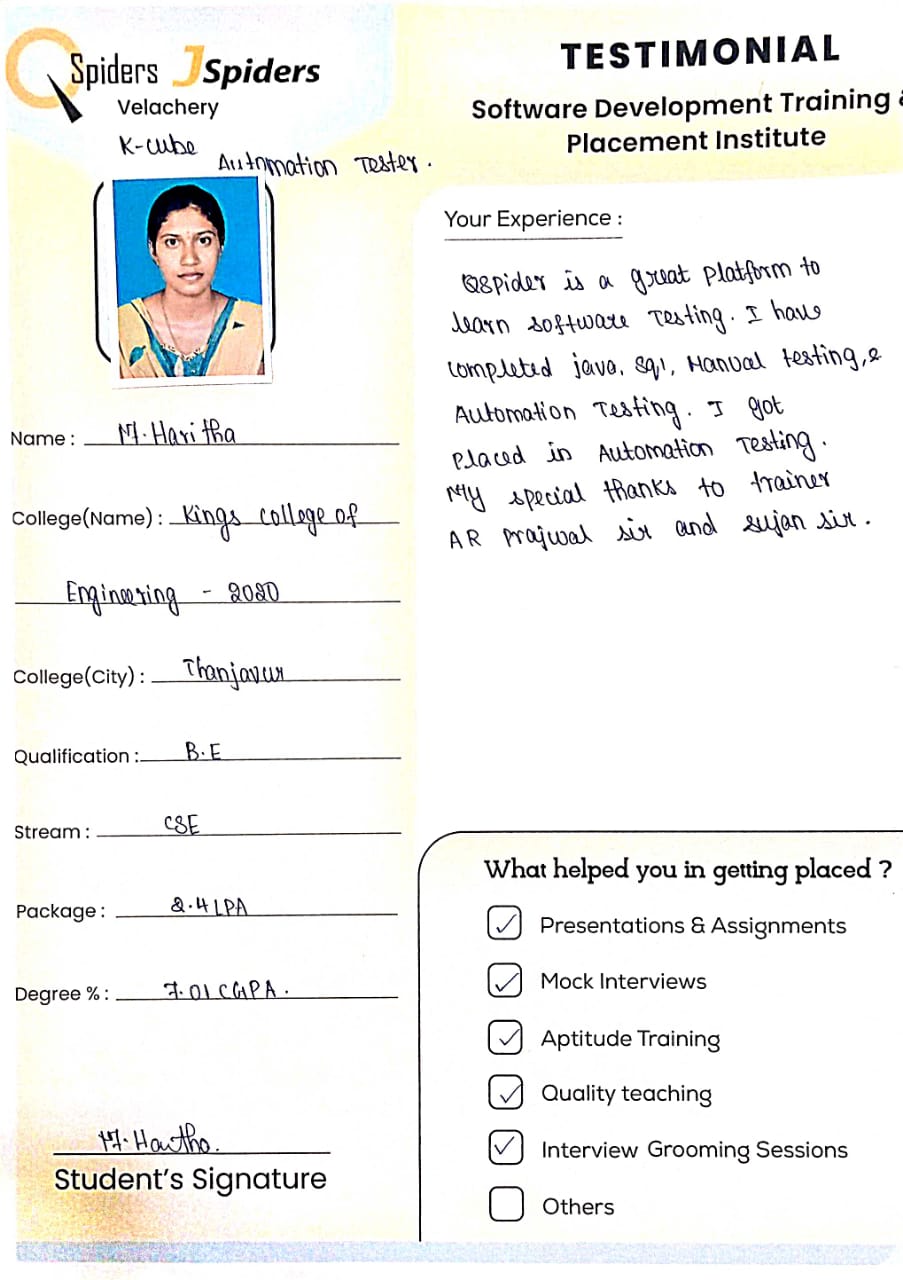 QSpiders JSpiders
Velachery
K-cube
Automation Tester.
TESTIMONIAL
Software Development Training &
Placement Institute
Name : M.Haritha
College(Name) : Kings college of
Engineering - 2020
College(City) : Thanjavur
Qualification : B.E
Stream : CSE
Package : 2.4 LPA
Degree % : 7.01 CGPA.
M.Haritha.
Student's Signature
Your Experience :
QSpider is a great platform to
learn software Testing. I have
completed java, sql, Manual testing, &
Automation Testing. I got
placed in Automation Testing.
My special thanks to trainer
AR prajwal sir and sujan sir.
What helped you in getting placed ?
Presentations & Assignments
Mock Interviews
Aptitude Training
Quality teaching
Interview Grooming Sessions
Others